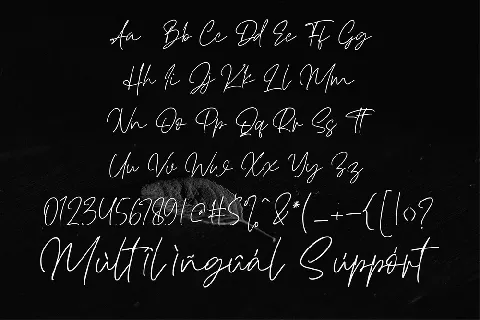 Aa Bb Cc Dd Ee Ff Gg
Hh Ii Jj Kk Ll Mm
Nn Oo Pp Qq Rr Ss Tt
Uu Vv Ww Xx Yy Zz
0123456789!@#$%^&*(_+-{[|<>?
Mùltïlìngüál Súppórt